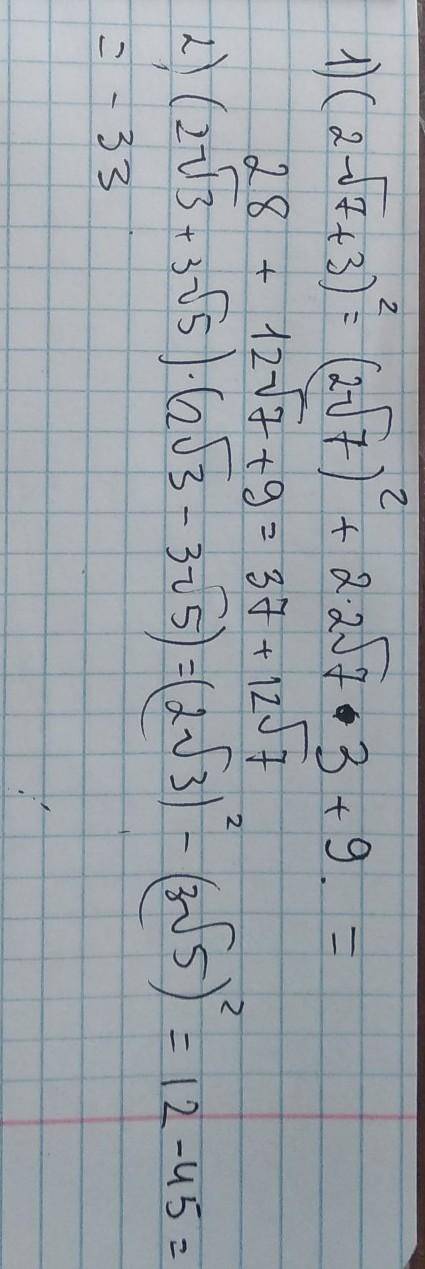 1) (2√7+3)² = (2√7)² + 2·2√7·3 + 9. =
28 + 12√7 + 9 = 37 + 12√7
2) (2√3 + 3√5)·(2√3 - 3√5) = (2√3)² - (3√5)² = 12 - 45 =
= - 33